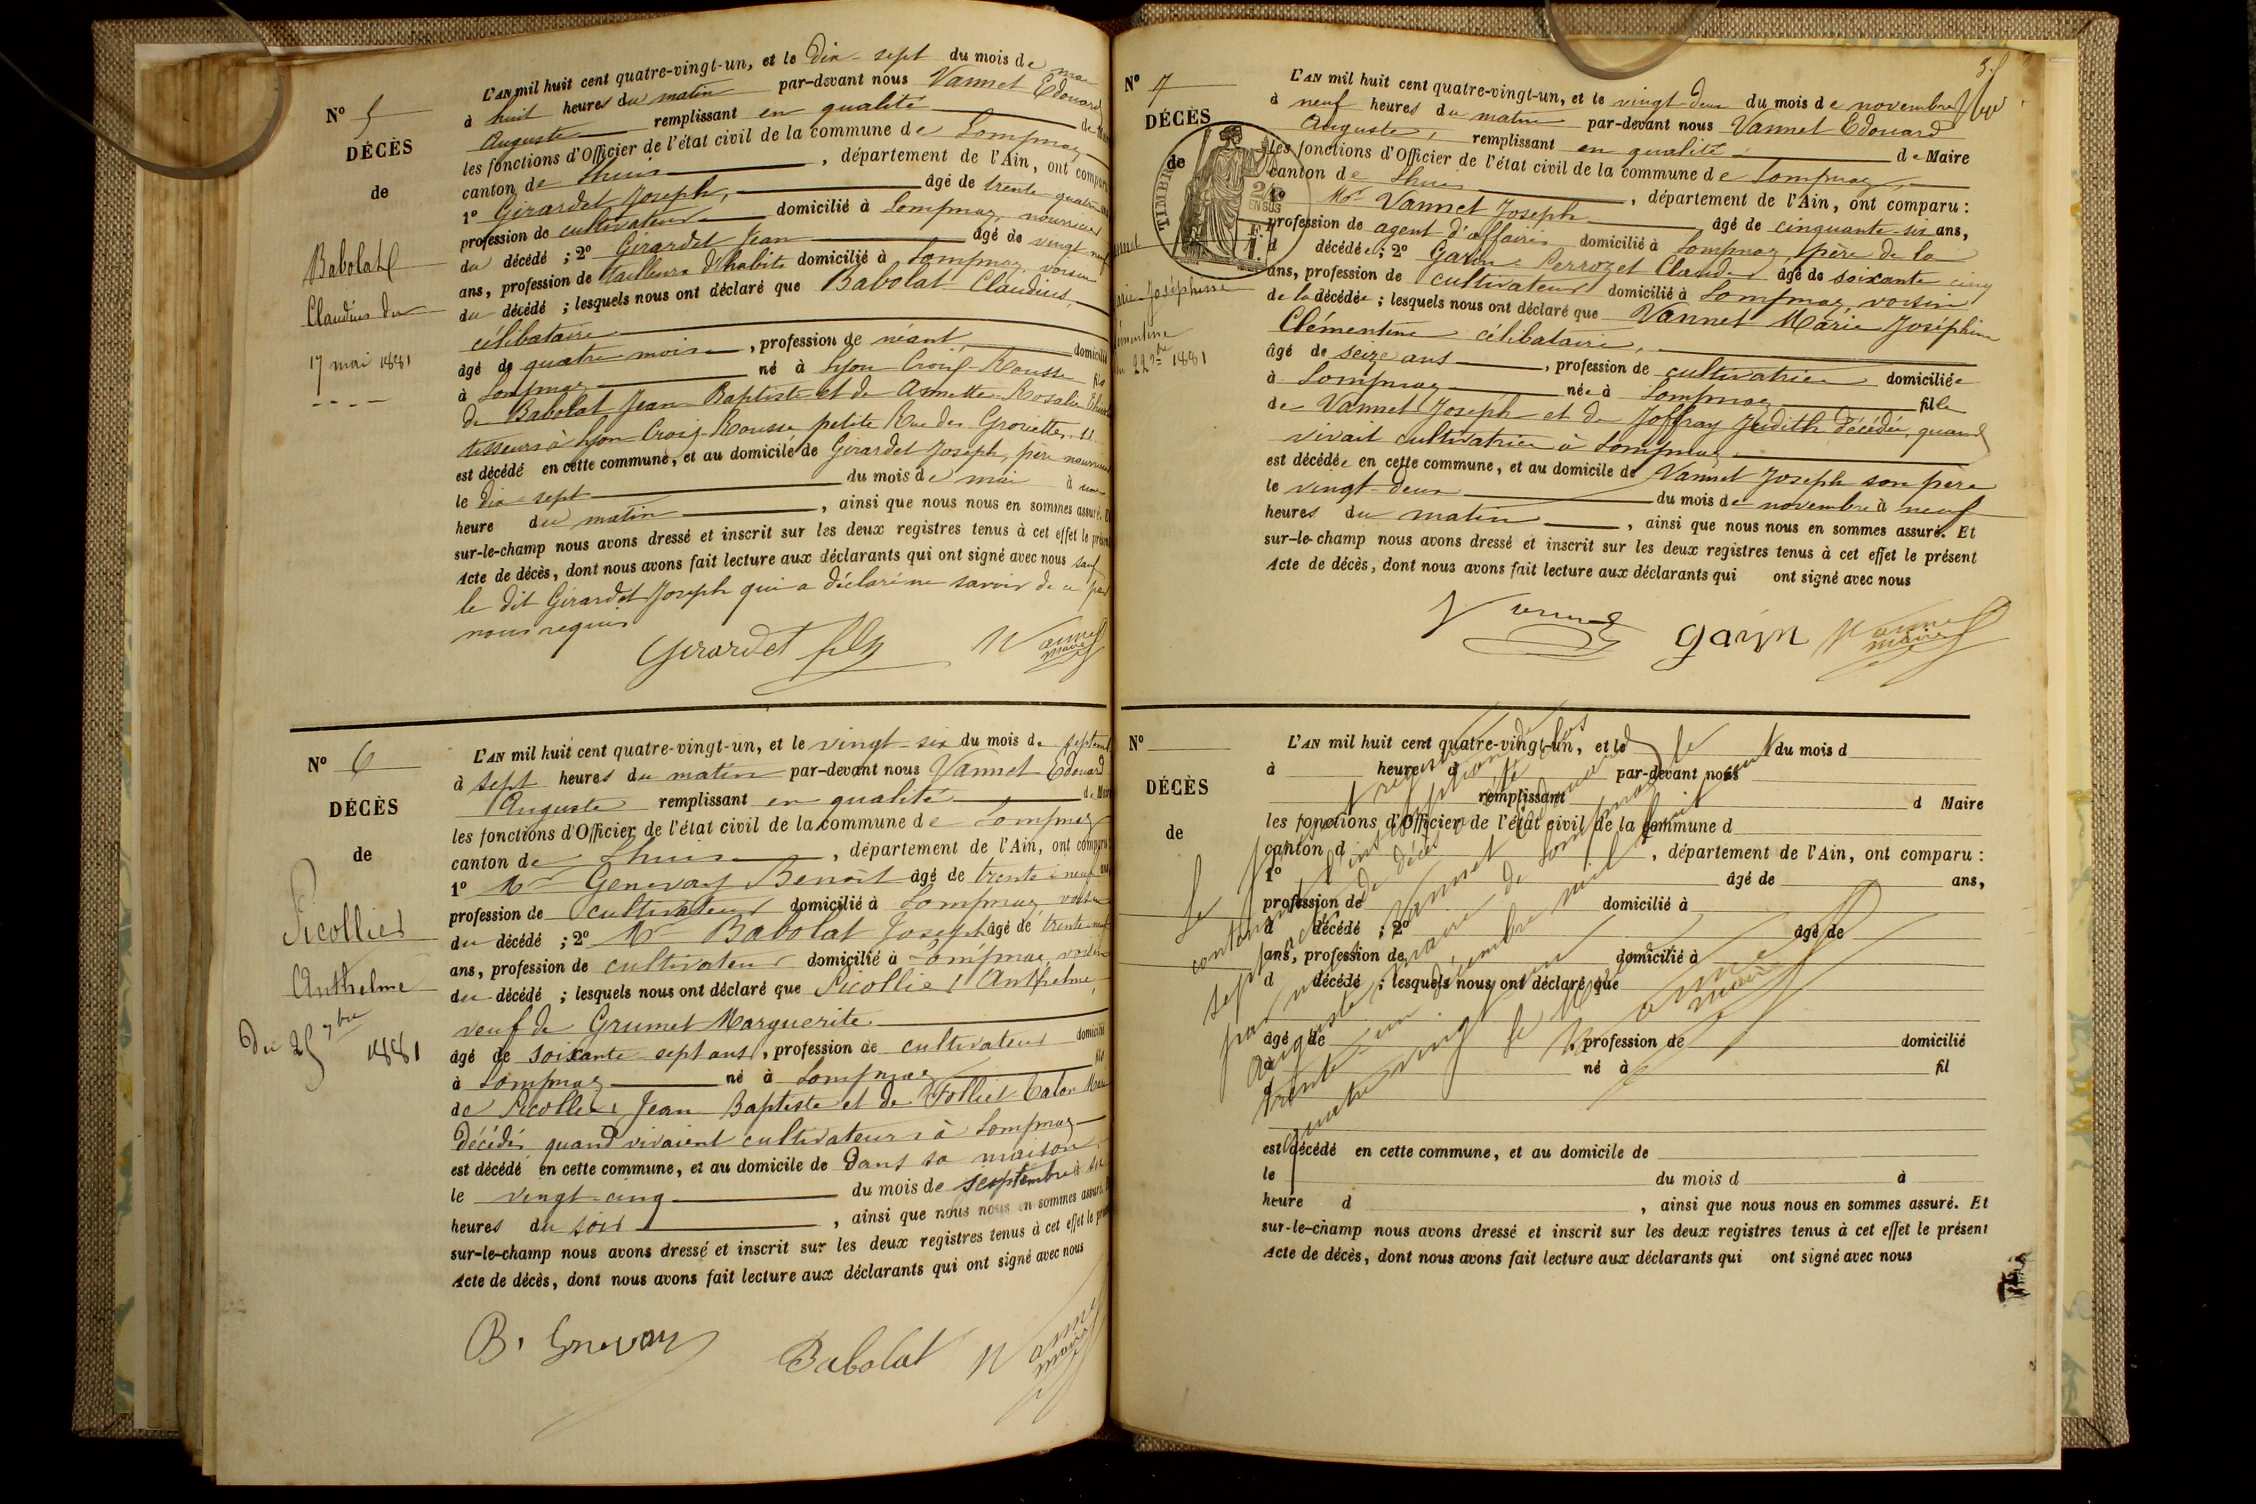 N° 5
DÉCÈS
de
Babolat
Claudius du
17 mai 1881
L'AN mil huit cent quatre-vingt-un, et le dix-sept du mois de mai
à huit heures du matin par-devant nous Vannet Edouard
Auguste remplissant en qualité de Maire
les fonctions d'Officier de l'état civil de la commune de Lompnaz
canton de Lhuis, département de l'Ain, ont comparu
1° Girardet Joseph, âgé de trente quatre ans
profession de cultivateur domicilié à Lompnaz, nourricier
du décédé ; 2° Girardet Jean âgé de vingt neuf
ans, profession de tailleur d'habits domicilié à Lompnaz, voisin
du décédé ; lesquels nous ont déclaré que Babolat Claudius,
célibataire
âgé de quatre mois, profession de néant, domicilié
à Lompnaz né à Lyon Croix-Rousse fils
de Babolat Jean Baptiste et de Annette Rosalie
tisseurs à Lyon Croix-Rousse petite Rue des Gloriettes, 11
est décédé en cette commune, et au domicile de Girardet Joseph, père nourricier
le dix-sept du mois de mai à une
heure du matin, ainsi que nous nous en sommes assuré. Et
sur-le-champ nous avons dressé et inscrit sur les deux registres tenus à cet effet le présent
Acte de décès, dont nous avons fait lecture aux déclarants qui ont signé avec nous sauf
le dit Girardet Joseph qui a déclaré ne savoir de ce par
nous requis
Girardet fils Vannet maire
N° 6
DÉCÈS
de
Picollier
Anthelme
Du 25 7bre 1881
L'AN mil huit cent quatre-vingt-un, et le vingt-six du mois de septembre
à sept heures du matin par-devant nous Vannet Edouard
Auguste remplissant en qualité de Maire
les fonctions d'Officier de l'état civil de la commune de Lompnaz
canton de Lhuis, département de l'Ain, ont comparu
1° Mr Genevay Benoît âgé de trente-neuf ans
profession de cultivateur domicilié à Lompnaz voisin
du décédé ; 2° Mr Babolat Joseph âgé de trente-neuf
ans, profession de cultivateur domicilié à Lompnaz, voisin
du décédé ; lesquels nous ont déclaré que Picollier Anthelme,
veuf de Grumet Marguerite
âgé de soixante-sept ans, profession de cultivateur domicilié
à Lompnaz né à Lompnaz fils
de Picollier Jean Baptiste et de Folliet
décédés quand vivaient cultivateurs à Lompnaz
est décédé en cette commune, et au domicile de dans sa maison
le vingt-cinq du mois de septembre à six
heures du soir, ainsi que nous nous en sommes assuré. Et
sur-le-champ nous avons dressé et inscrit sur les deux registres tenus à cet effet le présent
Acte de décès, dont nous avons fait lecture aux déclarants qui ont signé avec nous
B. Genevay Babolat Vannet maire
N° 7
DÉCÈS
de
TIMBRE
2/10 EN SUS
Marie-Joséphine
Clémentine
du 22 9bre 1881
L'AN mil huit cent quatre-vingt-un, et le vingt-deux du mois de novembre
à neuf heures du matin par-devant nous Vannet Edouard
Auguste, remplissant en qualité de Maire
les fonctions d'Officier de l'état civil de la commune de Lompnaz,
canton de Lhuis, département de l'Ain, ont comparu :
1° Mr Vannet Joseph âgé de cinquante-six ans,
profession de agent d'affaires domicilié à Lompnaz, père de la
d décédée ; 2° Garin-Perrozet Claude âgé de soixante cinq
ans, profession de cultivateur domicilié à Lompnaz, voisin
de la décédée ; lesquels nous ont déclaré que Vannet Marie Joséphine
Clémentine célibataire,
âgé de seize ans, profession de cultivatrice domiciliée
à Lompnaz née à Lompnaz fille
de Vannet Joseph et de Joffray Judith décédée, quand
vivait cultivatrice à Lompnaz
est décédée en cette commune, et au domicile de Vannet Joseph son père
le vingt-deux du mois de novembre à neuf
heures du matin, ainsi que nous nous en sommes assuré. Et
sur-le-champ nous avons dressé et inscrit sur les deux registres tenus à cet effet le présent
Acte de décès, dont nous avons fait lecture aux déclarants qui ont signé avec nous
Vannet Garin Vannet maire
N°
DÉCÈS
de
L'AN mil huit cent quatre-vingt-un, et le du mois d
à heure d par-devant nous
remplissant d Maire
les fonctions d'Officier de l'état civil de la commune d
canton d , département de l'Ain, ont comparu :
1° âgé de ans,
profession de domicilié à
d décédé ; 2° âgé de
ans, profession de domicilié à
d décédé ; lesquels nous ont déclaré que
âgé de , profession de domicilié
à né à fil
d
est décédé en cette commune, et au domicile de
le du mois d à
heure d , ainsi que nous nous en sommes assuré. Et
sur-le-champ nous avons dressé et inscrit sur les deux registres tenus à cet effet le présent
Acte de décès, dont nous avons fait lecture aux déclarants qui ont signé avec nous
Le présent registre
contenant l'inscription de
sept actes de décès a été clos
par nous Vannet Edouard
Auguste maire de Lompnaz le
trente-un décembre mil huit cent
quatre vingt un
Le Maire
Vannet maire